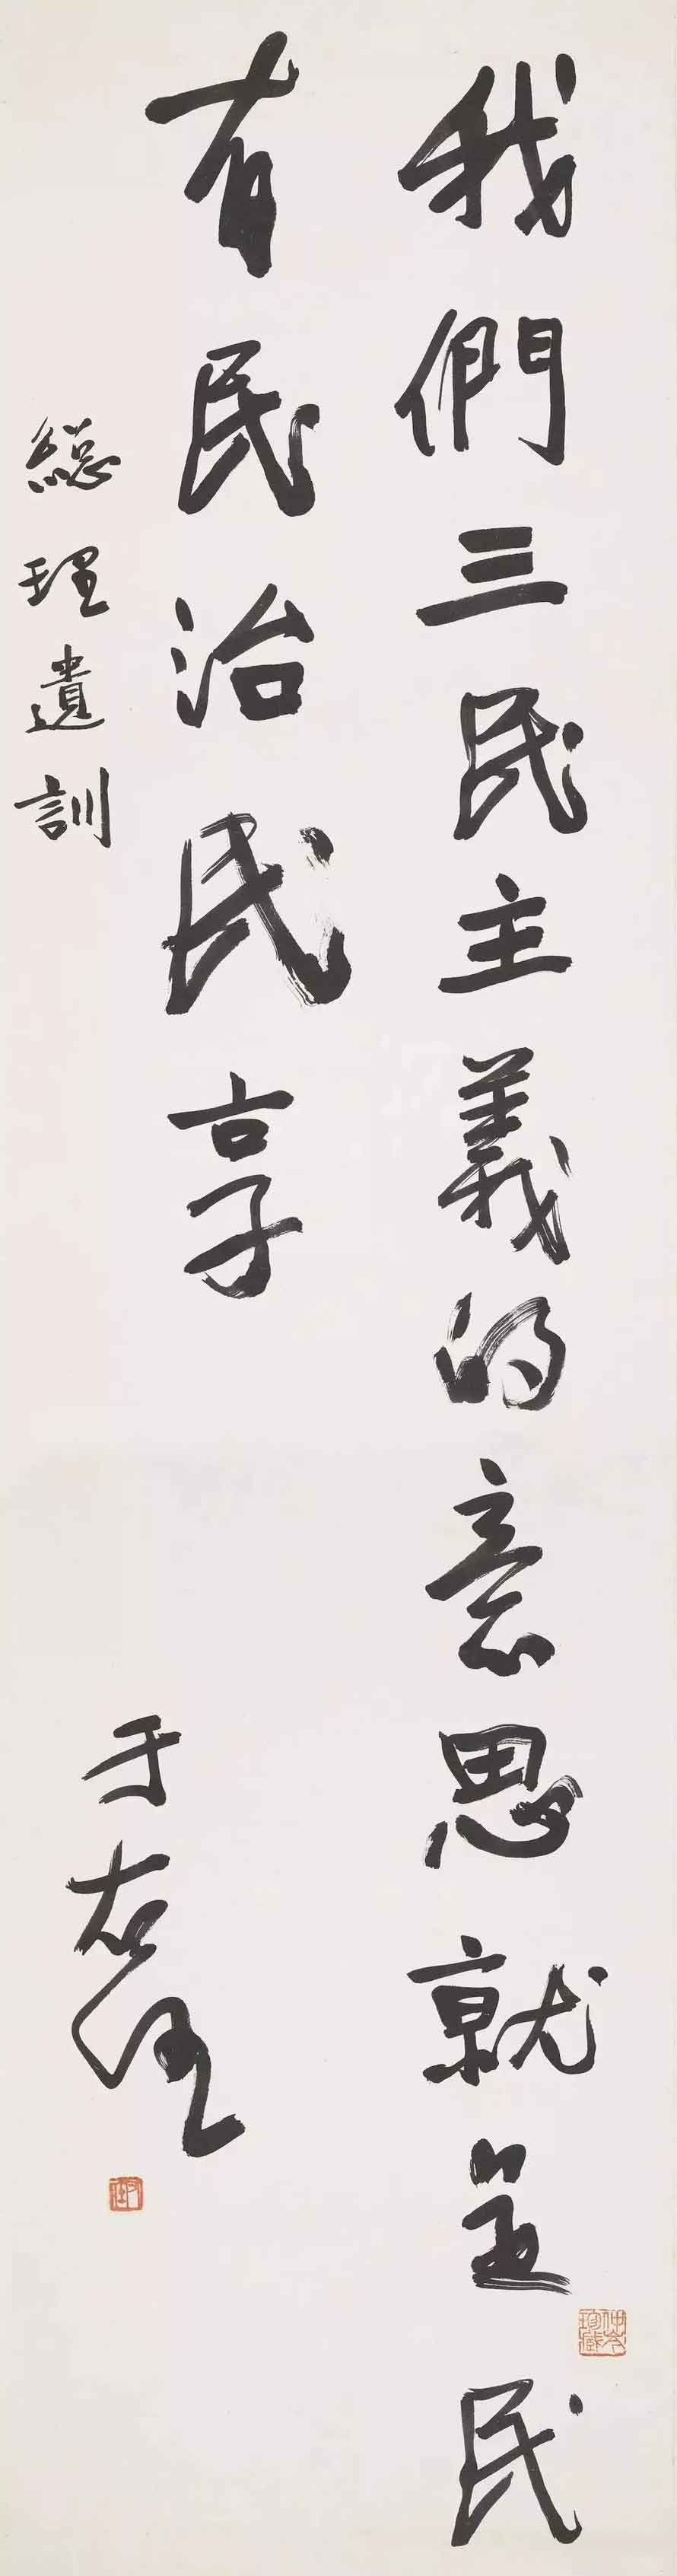 我們三民主義的意思就是民
有民治民享
總理遺訓
于右任